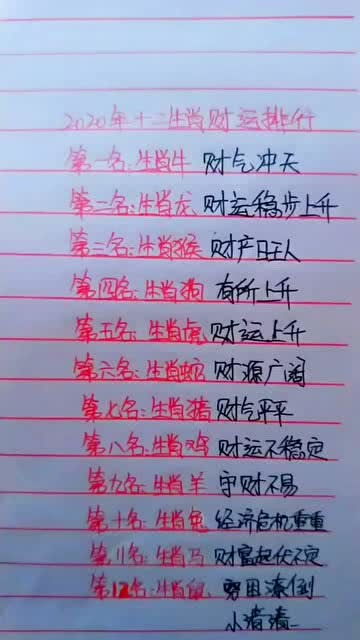 2020年十二生肖财运排行
第一名:生肖牛 财气冲天
第二名:生肖龙 财运稳步上升
第三名:生肖猴 财产日王人
第四名:生肖狗 有所上升
第五名:生肖虎 财运上升
第六名:生肖蛇 财源广阔
第七名:生肖猪 财气平平
第八名:生肖鸡 财运不稳定
第九名:生肖羊 守财不易
第十名:生肖兔 经济危机重重
第11名:生肖马 财富起伏不定
第12名:生肖鼠、穷困潦倒
小清清